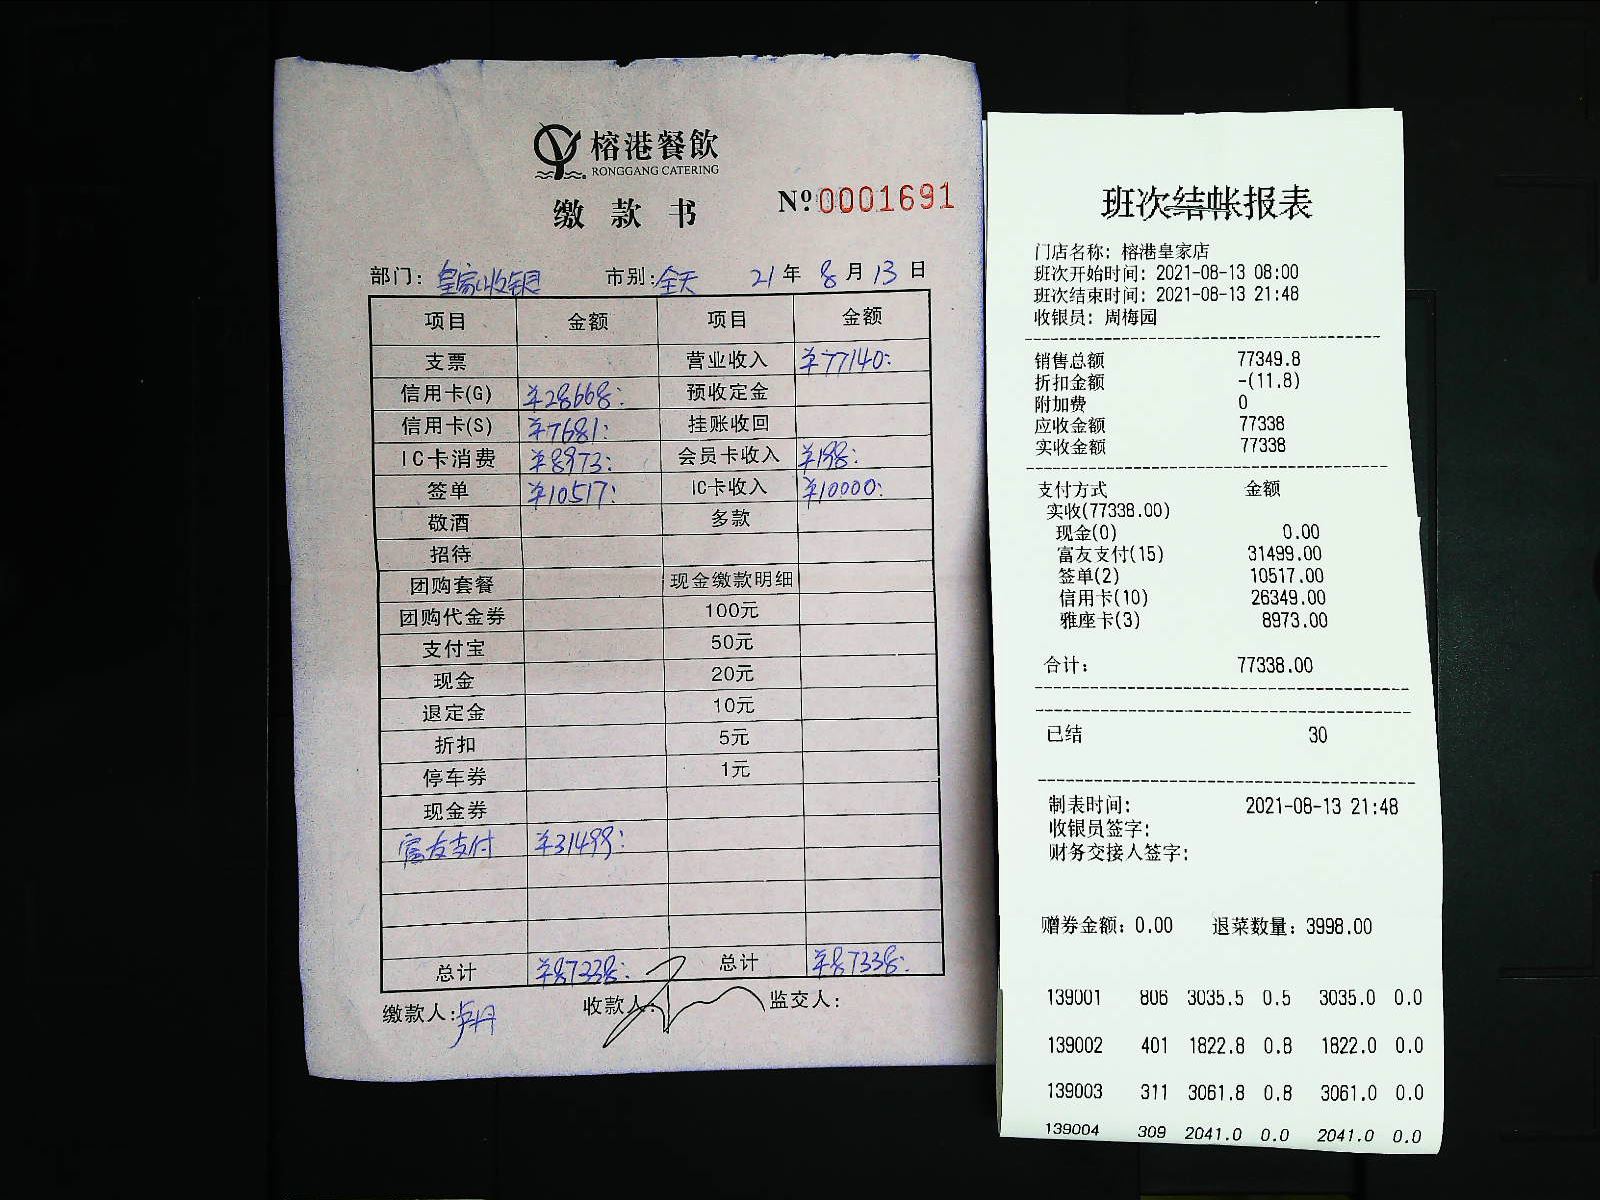 榕港餐飲
RONGGANG CATERING
缴款书
Nº 0001691
部门：皇家收银 市别：全天 21年8月13日
项目 金额 项目 金额
支票 营业收入 ¥77140:
信用卡(G) ¥28668: 预收定金
信用卡(S) ¥7681: 挂账收回
IC卡消费 ¥8973: 会员卡收入 ¥198:
签单 ¥10517: IC卡收入 ¥10000:
敬酒 多款
招待
团购套餐 现金缴款明细
团购代金券 100元
支付宝 50元
现金 20元
退定金 10元
折扣 5元
停车券 1元
现金券
富友支付 ¥31499:
总计 ¥87338: 总计 ¥87338:
缴款人: 收款人: 监交人:
班次结帐报表
门店名称: 榕港皇家店
班次开始时间: 2021-08-13 08:00
班次结束时间: 2021-08-13 21:48
收银员: 周梅园
销售总额 77349.8
折扣金额 -(11.8)
附加费 0
应收金额 77338
实收金额 77338
支付方式 金额
实收(77338.00)
现金(0) 0.00
富友支付(15) 31499.00
签单(2) 10517.00
信用卡(10) 26349.00
雅座卡(3) 8973.00
合计: 77338.00
已结 30
制表时间: 2021-08-13 21:48
收银员签字:
财务交接人签字:
赠券金额: 0.00 退菜数量: 3998.00
139001 806 3035.5 0.5 3035.0 0.0
139002 401 1822.8 0.8 1822.0 0.0
139003 311 3061.8 0.8 3061.0 0.0
139004 309 2041.0 0.0 2041.0 0.0